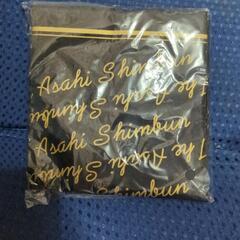 Asahi Shimbun
The Asahi Shimbun
Asahi Shimbun
The Asahi Shimbun
Shimbun